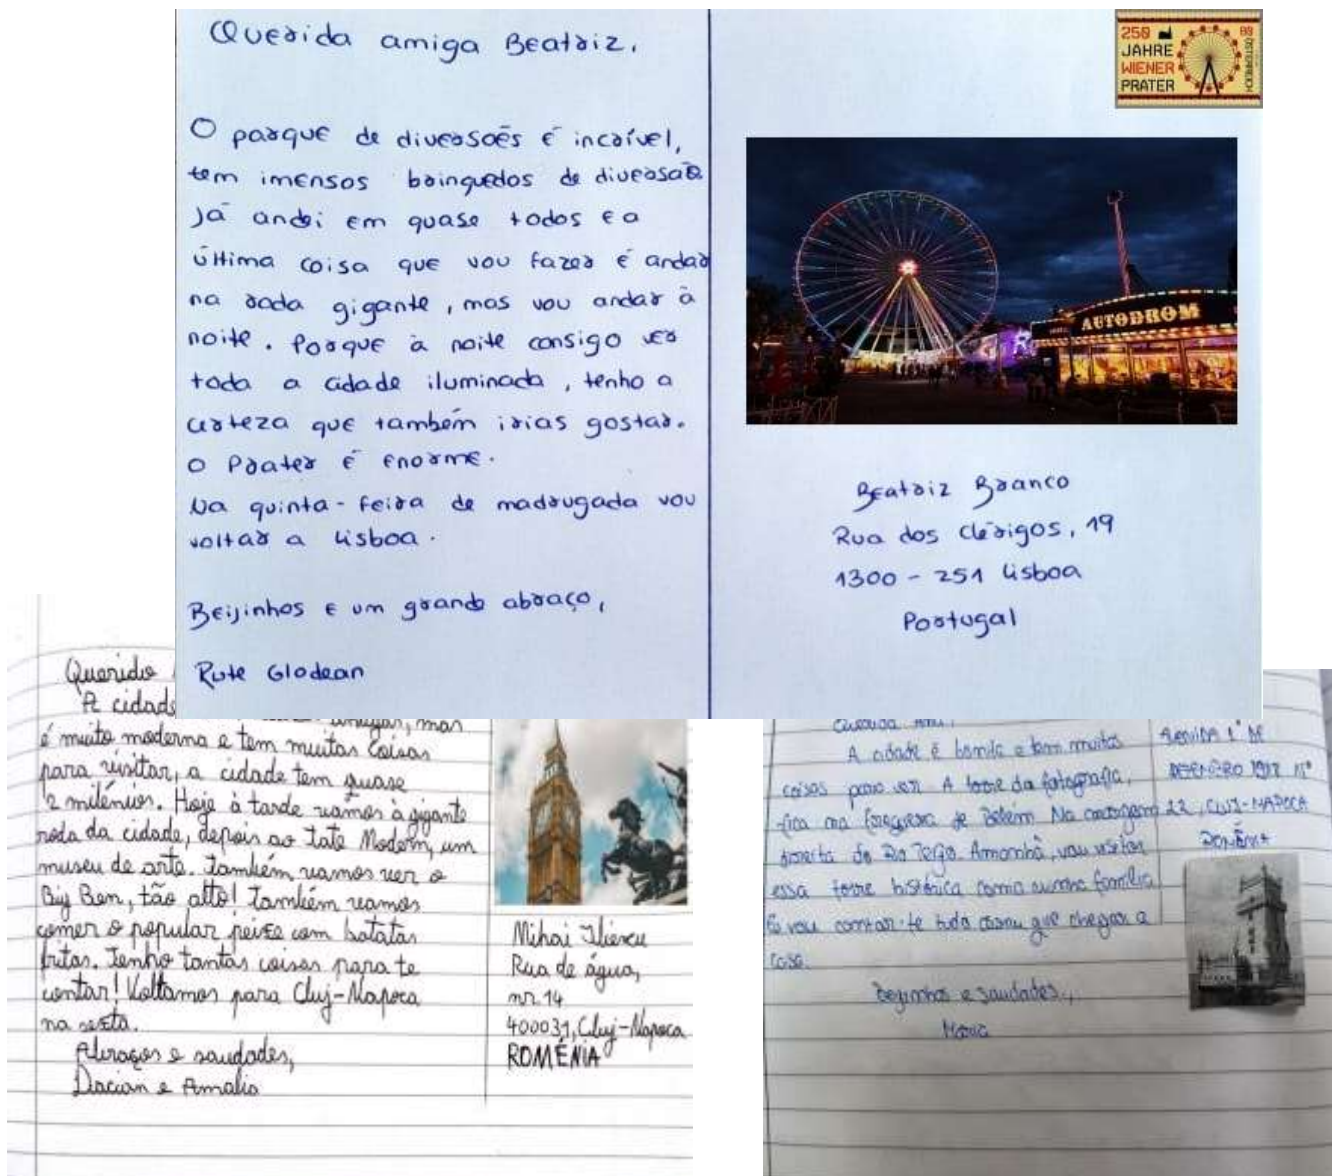 Querida amiga Beatriz,
O parque de diversões é incrível,
tem imensos brinquedos de diversão
já andei em quase todos e a
última coisa que vou fazer é andar
na roda gigante, mas vou andar à
noite. Porque à noite consigo ver
toda a cidade iluminada, tenho a
certeza que também irias gostar.
O Prater é enorme.
Na quinta-feira de madrugada vou
voltar a Lisboa.
Beijinhos e um grande abraço,
Rute Glodean
250
JAHRE
WIENER
PRATER
80
ÖSTERREICH
AUTODROM
Beatriz Branco
Rua dos Clérigos, 19
1300-251 Lisboa
Portugal
Querido
A cidade
mas
é muito moderna e tem muitas coisas
para visitar, a cidade tem quase
2 milénios. Hoje à tarde vamos à gigante
roda da cidade, depois ao Tate Modern, um
museu de arte. Também vamos ver o
Big Ben, tão alto! Também vamos
comer o popular peixe com batatas
fritas. Tenho tantas coisas para te
contar! Voltamos para Cluj-Napoca
na sexta.
Abraços e saudades,
Dacian e Amalia
Mihai Iliescu
Rua de água,
nr. 14
400031, Cluj-Napoca
ROMÉNIA
A cidade é bonita e tem muitas
coisas para ver. A torre da fotografia,
fica na freguesia de Belém Na margem
direita do Rio Tejo. Amanhã, vou visitar
essa torre histórica com a minha família
E vou contar-te tudo assim que chegar a
casa.
Beijinhos e saudades.,
Maria
AVENIDA 1º DE
DEZEMBRO 1918 nº
22, CLUJ-NAPOCA
ROMÊNIA